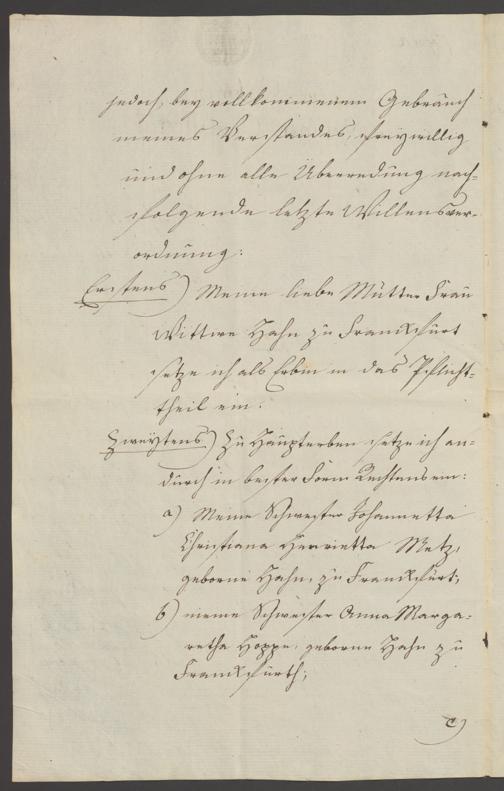 jedoch, bey vollkommenem Gebrauch
meines Verstandes, freywillig
und ohne alle Überredung nach-
folgende letzte Willensver-
ordnung:
Erstens) Meine liebe Mutter Frau
Wittwe Hahn zu Franckfurt
setze ich als Erbin in das Pflicht-
theil ein.
Zweytens) Zu Haupterben setze ich an-
durch in bester Form Rechtens ein:
a) Meine Schwester Johannetta
Christiana Henrietta Metz,
geborne Hahn, zu Franckfurt;
b) meine Schwester Anna Marga-
retha Hoppe, geborne Hahn zu
Franckfurth;
c)